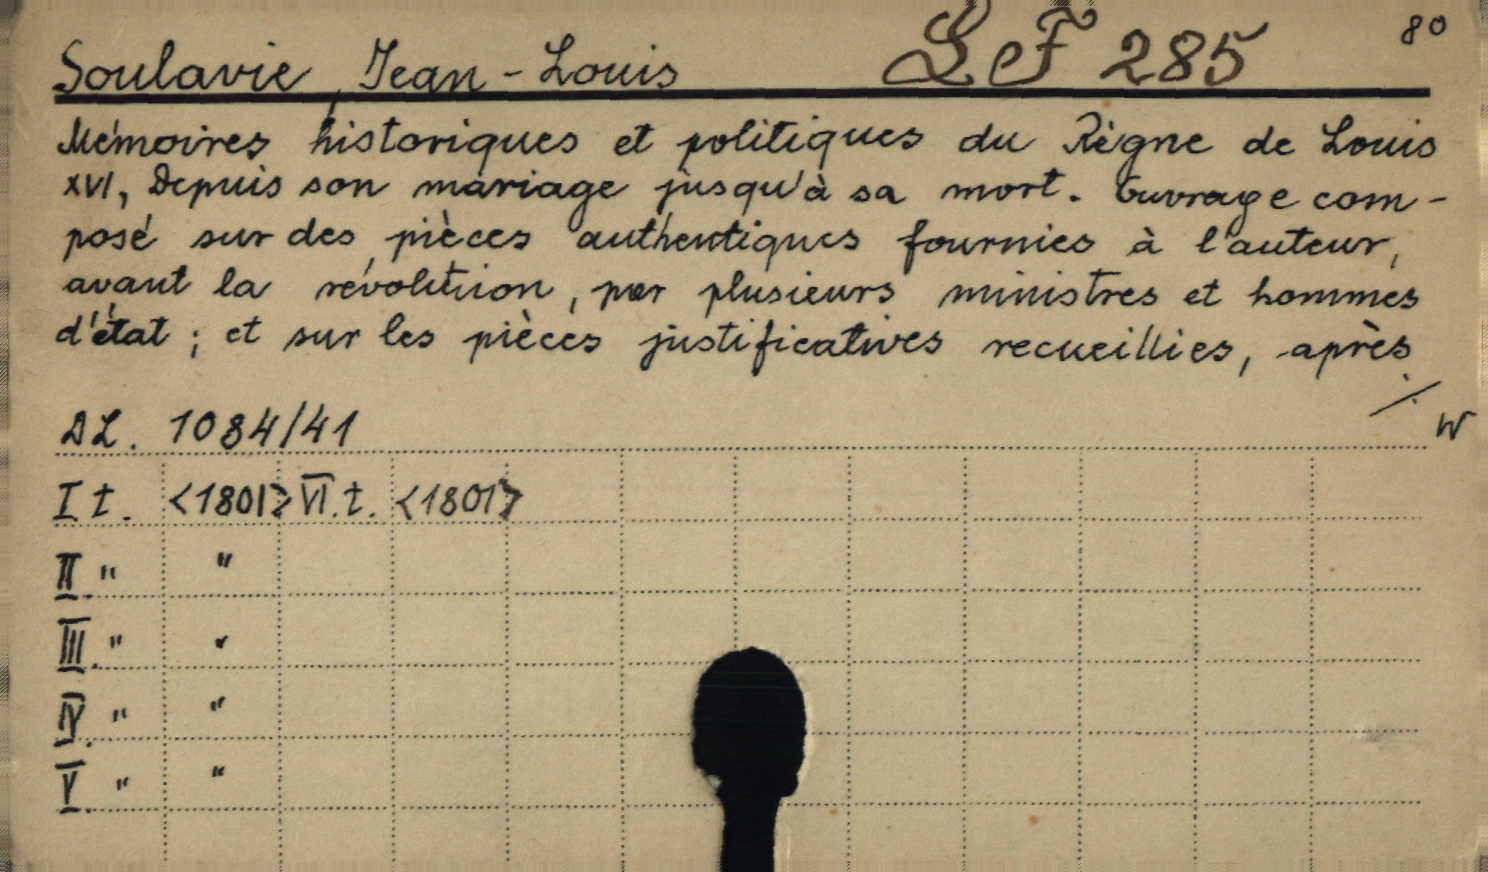 Soulavie, Jean-Louis LeF 285 80
Mémoires historiques et politiques du Règne de Louis
XVI, Depuis son mariage jusqu'à sa mort. Ouvrage com-
posé sur des pièces authentiques fournies à l'auteur,
avant la révolution, par plusieurs ministres et hommes
d'état; et sur les pièces justificatives recueillies, après
./.
AL. 1084/41 W
I t. <1801> VI. t. <1801>
II. " "
III. " "
IV. " "
V. " "